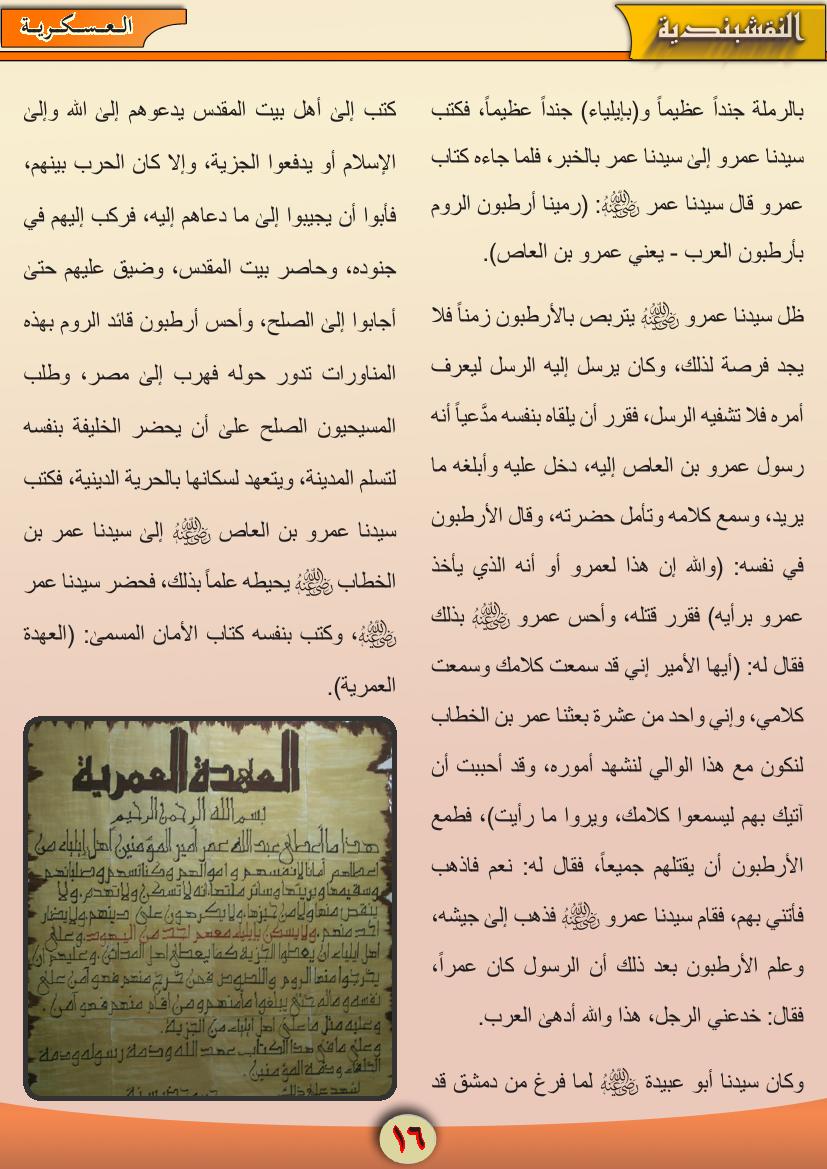 النقشبندية
العسكرية
بالرملة جنداً عظيماً و(بإيلياء) جنداً عظيماً، فكتب
سيدنا عمرو إلىٰ سيدنا عمر بالخبر، فلما جاءه كتاب
عمرو قال سيدنا عمر ﵁: (رمينا أرطبون الروم
بأرطبون العرب - يعني عمرو بن العاص).
ظل سيدنا عمرو ﵁ يتربص بالأرطبون زمناً فلا
يجد فرصة لذلك، وكان يرسل إليه الرسل ليعرف
أمره فلا تشفيه الرسل، فقرر أن يلقاه بنفسه مدَّعياً أنه
رسول عمرو بن العاص إليه، دخل عليه وأبلغه ما
يريد، وسمع كلامه وتأمل حضرته، وقال الأرطبون
في نفسه: (والله إن هذا لعمرو أو أنه الذي يأخذ
عمرو برأيه) فقرر قتله، وأحس عمرو ﵁ بذلك
فقال له: (أيها الأمير إني قد سمعت كلامك وسمعت
كلامي، وإني واحد من عشرة بعثنا عمر بن الخطاب
لنكون مع هذا الوالي لنشهد أموره، وقد أحببت أن
آتيك بهم ليسمعوا كلامك، ويروا ما رأيت)، فطمع
الأرطبون أن يقتلهم جميعاً، فقال له: نعم فاذهب
فأتني بهم، فقام سيدنا عمرو ﵁ فذهب إلىٰ جيشه،
وعلم الأرطبون بعد ذلك أن الرسول كان عمراً،
فقال: خدعني الرجل، هذا والله أدهىٰ العرب.
وكان سيدنا أبو عبيدة ﵁ لما فرغ من دمشق قد
كتب إلىٰ أهل بيت المقدس يدعوهم إلىٰ الله وإلىٰ
الإسلام أو يدفعوا الجزية، وإلا كان الحرب بينهم،
فأبوا أن يجيبوا إلىٰ ما دعاهم إليه، فركب إليهم في
جنوده، وحاصر بيت المقدس، وضيق عليهم حتىٰ
أجابوا إلىٰ الصلح، وأحس أرطبون قائد الروم بهذه
المناورات تدور حوله فهرب إلىٰ مصر، وطلب
المسيحيون الصلح علىٰ أن يحضر الخليفة بنفسه
لتسلم المدينة، ويتعهد لسكانها بالحرية الدينية، فكتب
سيدنا عمرو بن العاص ﵁ إلىٰ سيدنا عمر بن
الخطاب ﵁ يحيطه علماً بذلك، فحضر سيدنا عمر
﵁، وكتب بنفسه كتاب الأمان المسمىٰ: (العهدة
العمرية).
العهدة العمرية
بسم الله الرحمن الرحيم
هذا ما أعطى عبد الله عمر أمير المؤمنين أهل إيلياء من
اعطاهم أمانا لانفسهم و اموالهم وكنائسهم وصلبانهم
وسقيمها وبريئها وسائر ملتها. انه لا تسكن ولا تهدم. ولا
ينقص منها ولا من حيزها. ولا يكرهون على دينهم ولا يضار
احد منهم. ولا يسكن بايلياء معهم احد من اليهود. وعلى
اهل ايلياء ان يعطوا الجزية كما يعطي اهل المدائن. وعليهم ان
يخرجوا منها الروم واللصوص فمن خرج منهم فهو آمن على
نفسه وماله حتى يبلغوا مأمنهم ومن اقام منهم فهو آمن.
وعليه مثل ما على اهل ايلياء من الجزية.
وعلى ما في هذا الكتاب عهد الله وذمة رسوله وذمة
الخلفاء وذمة المؤمنين.
شهد على ذلك
١٦